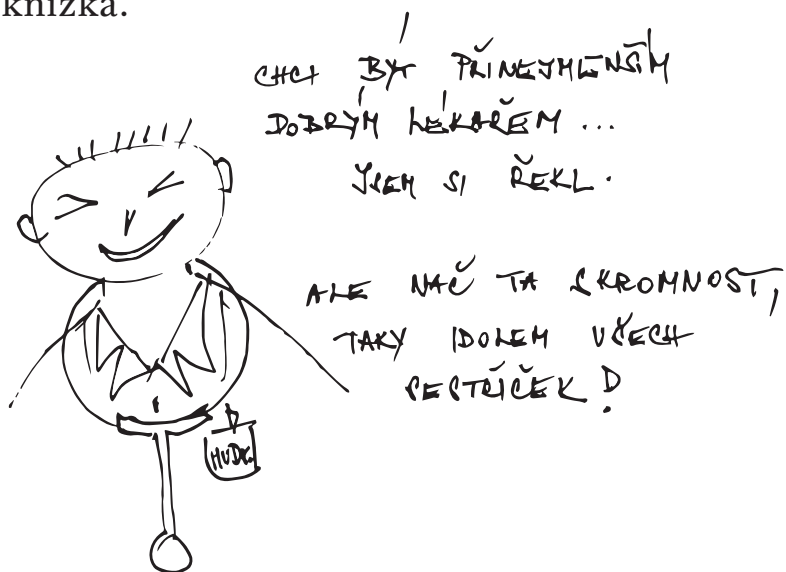 knížka.
CHCI BÝT PŘINEJMENŠÍM
DOBRÝM LÉKAŘEM ...
JSEM SI ŘEKL.
ALE NAČ TA SKROMNOST,
TAKY IDOLEM VŠECH
SESTŘIČEK!
MUDr.